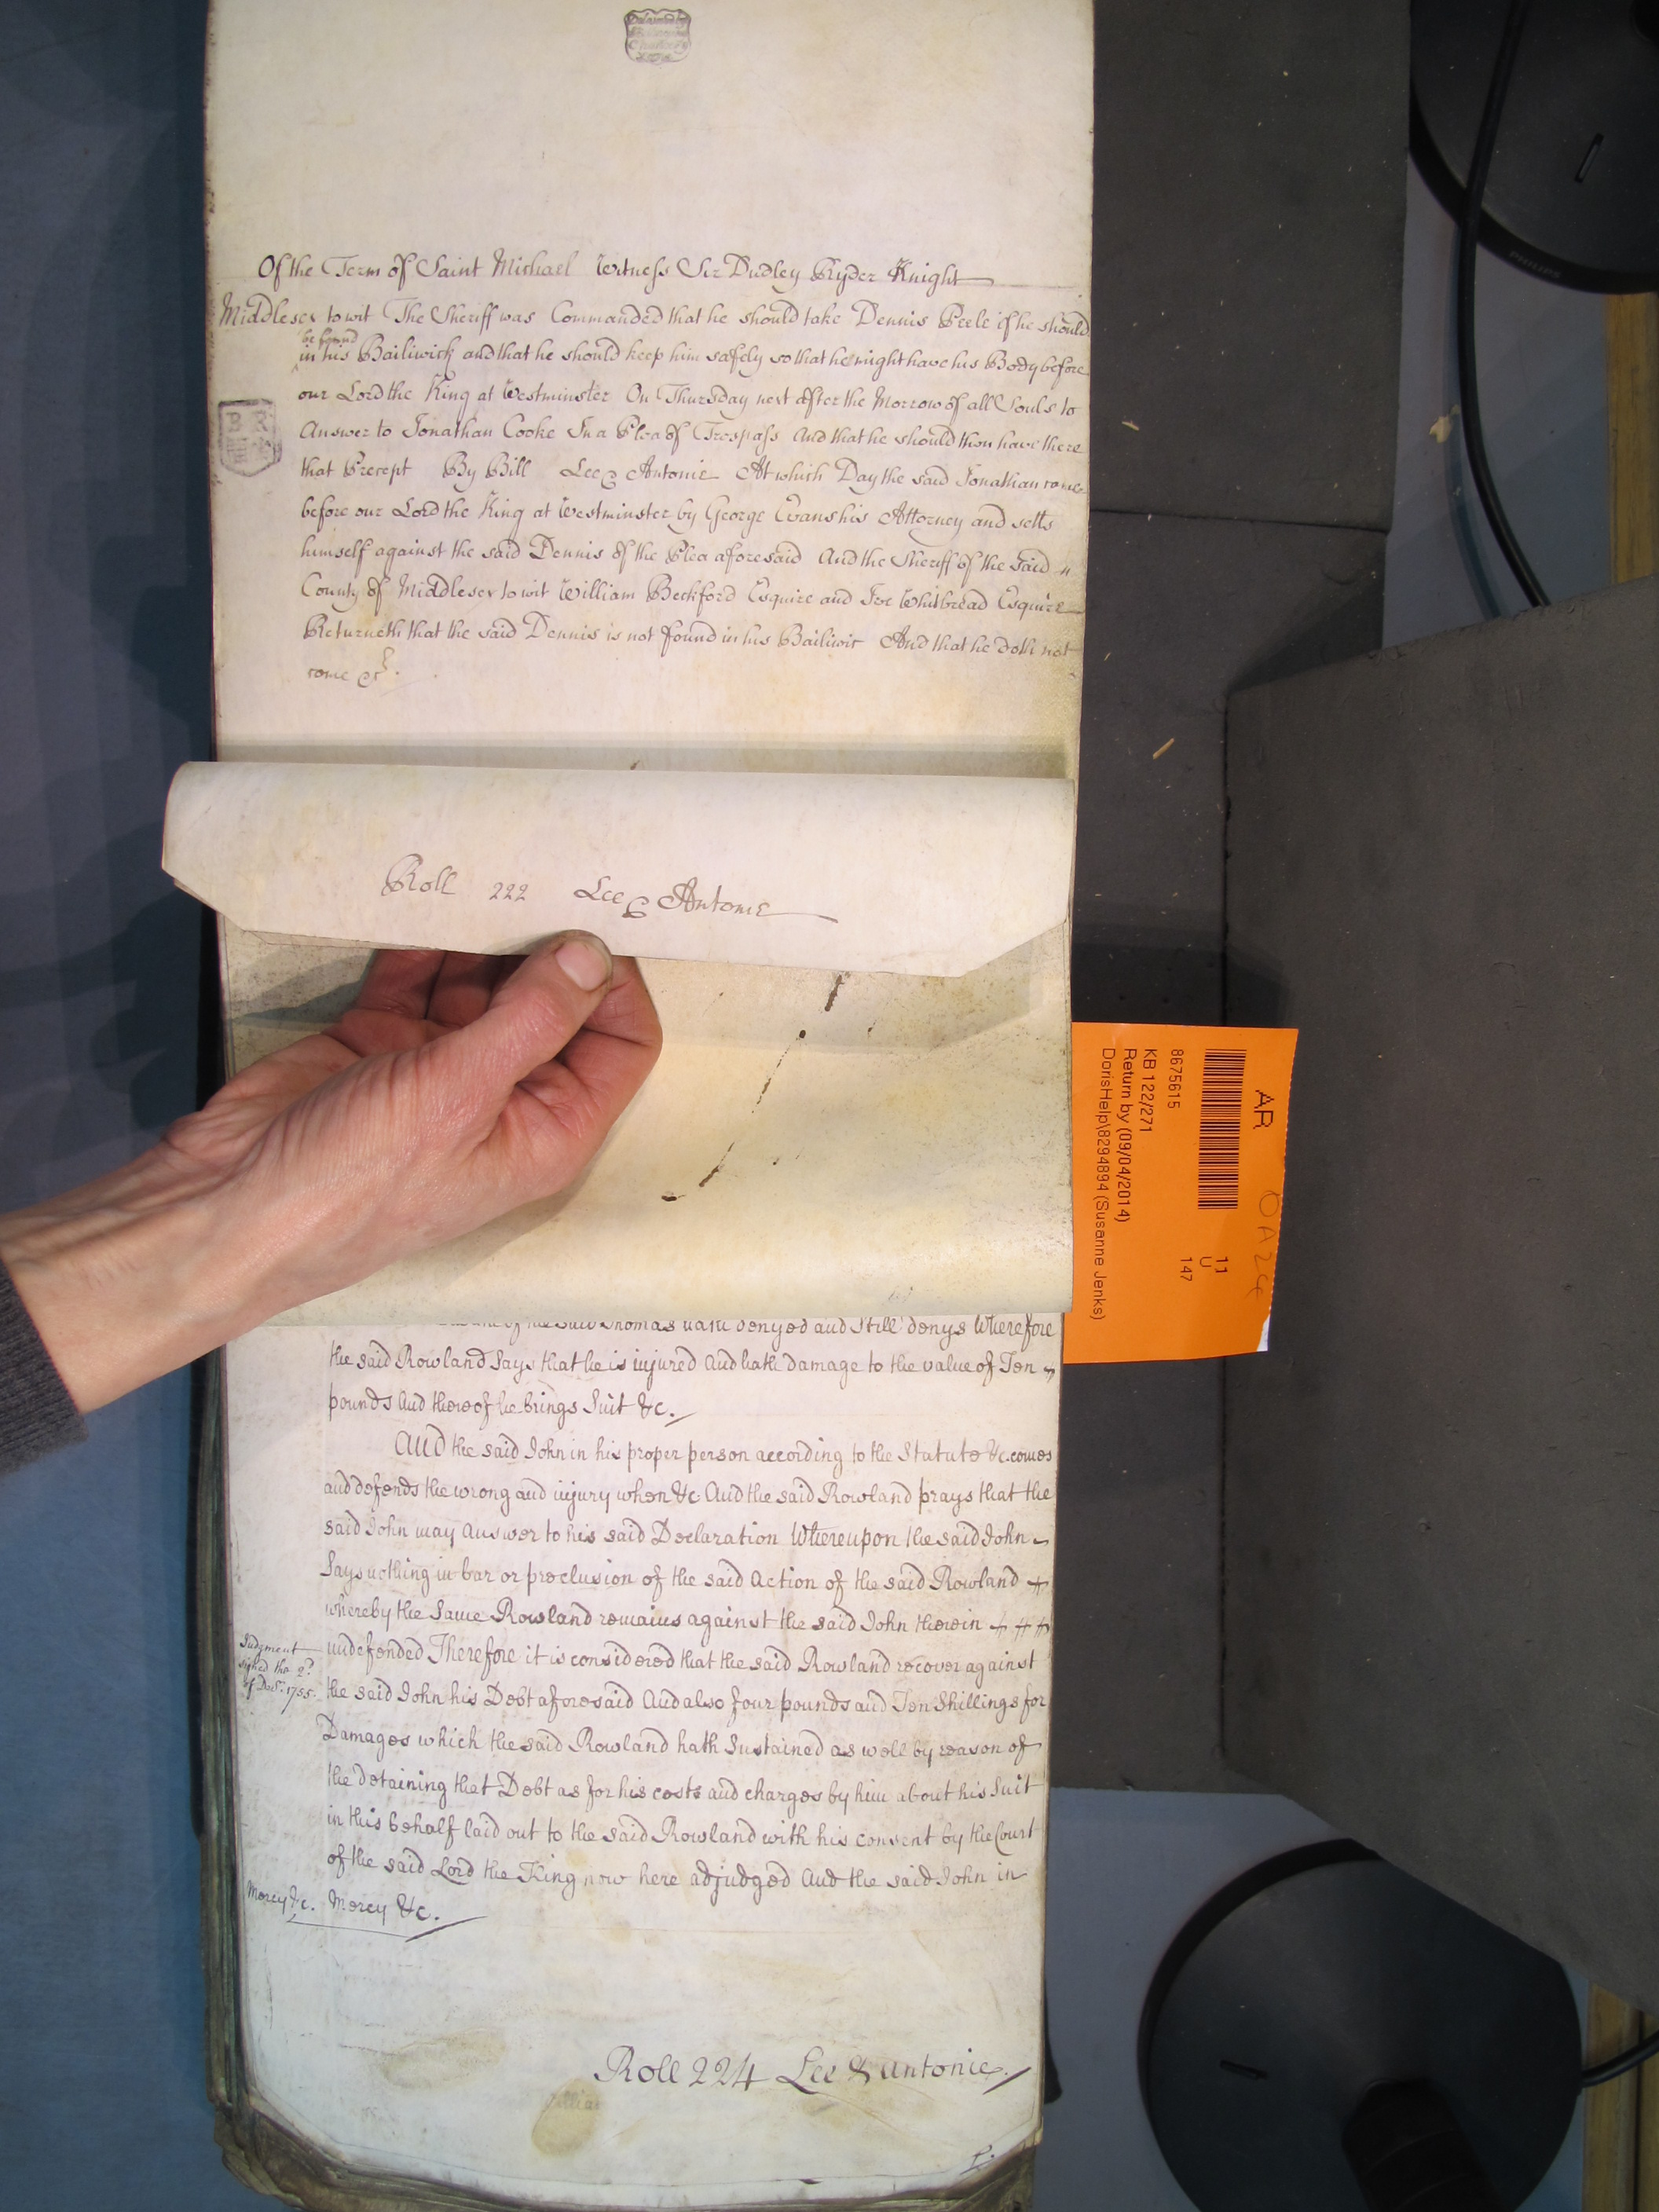 Of the Term of Saint Michael Witness Sir Dudley Ryder Knight
Middlesex to wit The Sheriff was Commanded that he should take Dennis Peele if he should
be found
in his Bailiwick and that he should keep him safely so that he might have his Body before
our Lord the King at Westminster On Thursday next after the Morrow of all Souls to
Answer to Jonathan Cooke In a Plea of Trespass And that he should then have there
that Precept By Bill Lee & Antonie At which Day the said Jonathan come
before our Lord the King at Westminster by George Evans his Attorney and setts
himself against the said Dennis of the Plea aforesaid And the Sheriff of the said
County of Middlesex to wit William Beckford Esquire and Ive Whitbread Esquire
Returneth that the said Dennis is not found in his Bailiwic And that he doth not
come &c.
B R
Roll 222 Lee & Antonie
of the said Thomas hath denyed and Still denys Wherefore
the said Rowland Says that he is injured And hath Damage to the value of Ten
pounds And thereof he brings Suit &c.
And the said John in his proper person according to the Statute &c. comes
and defends the wrong and injury when &c And the said Rowland prays that the
said John may Answer to his said Declaration Whereupon the said John
Says nothing in bar or preclusion of the said Action of the said Rowland
whereby the Same Rowland remains against the said John therein
undefended Therefore it is considered that the said Rowland recover against
the said John his Debt aforesaid And also four pounds and Ten Shillings for
Damages which the said Rowland hath Sustained as well by reason of
the detaining that Debt as for his costs and charges by him about his Suit
in this behalf laid out to the said Rowland with his consent by the Court
of the said Lord the King now here adjudged And the said John in
Mercy &c.
Judgment
signed the 2d.
of Decr. 1755.
Mercy &c.
Roll 224 Lee & Antonie.
AR
8675615
KB 122/271
Return by (09/04/2014)
DorisHelp\8294894 (Susanne Jenks)
11
U
147
OA24
PHILIPS